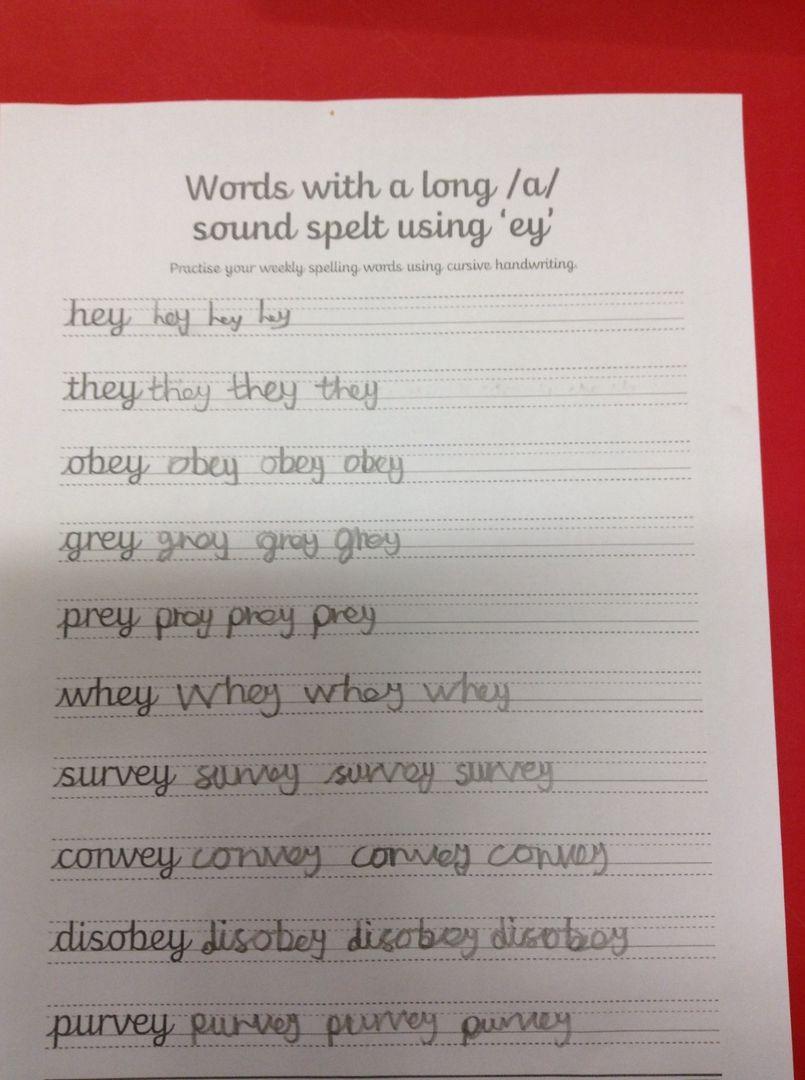 Words with a long /a/
sound spelt using ‘ey’
Practise your weekly spelling words using cursive handwriting.
hey hey hey hey
they they they they
obey obey obey obey
grey grey grey grey
prey prey prey prey
whey whey whey whey
survey survey survey survey
convey convey convey convey
disobey disobey disobey disobey
purvey purvey purvey purvey